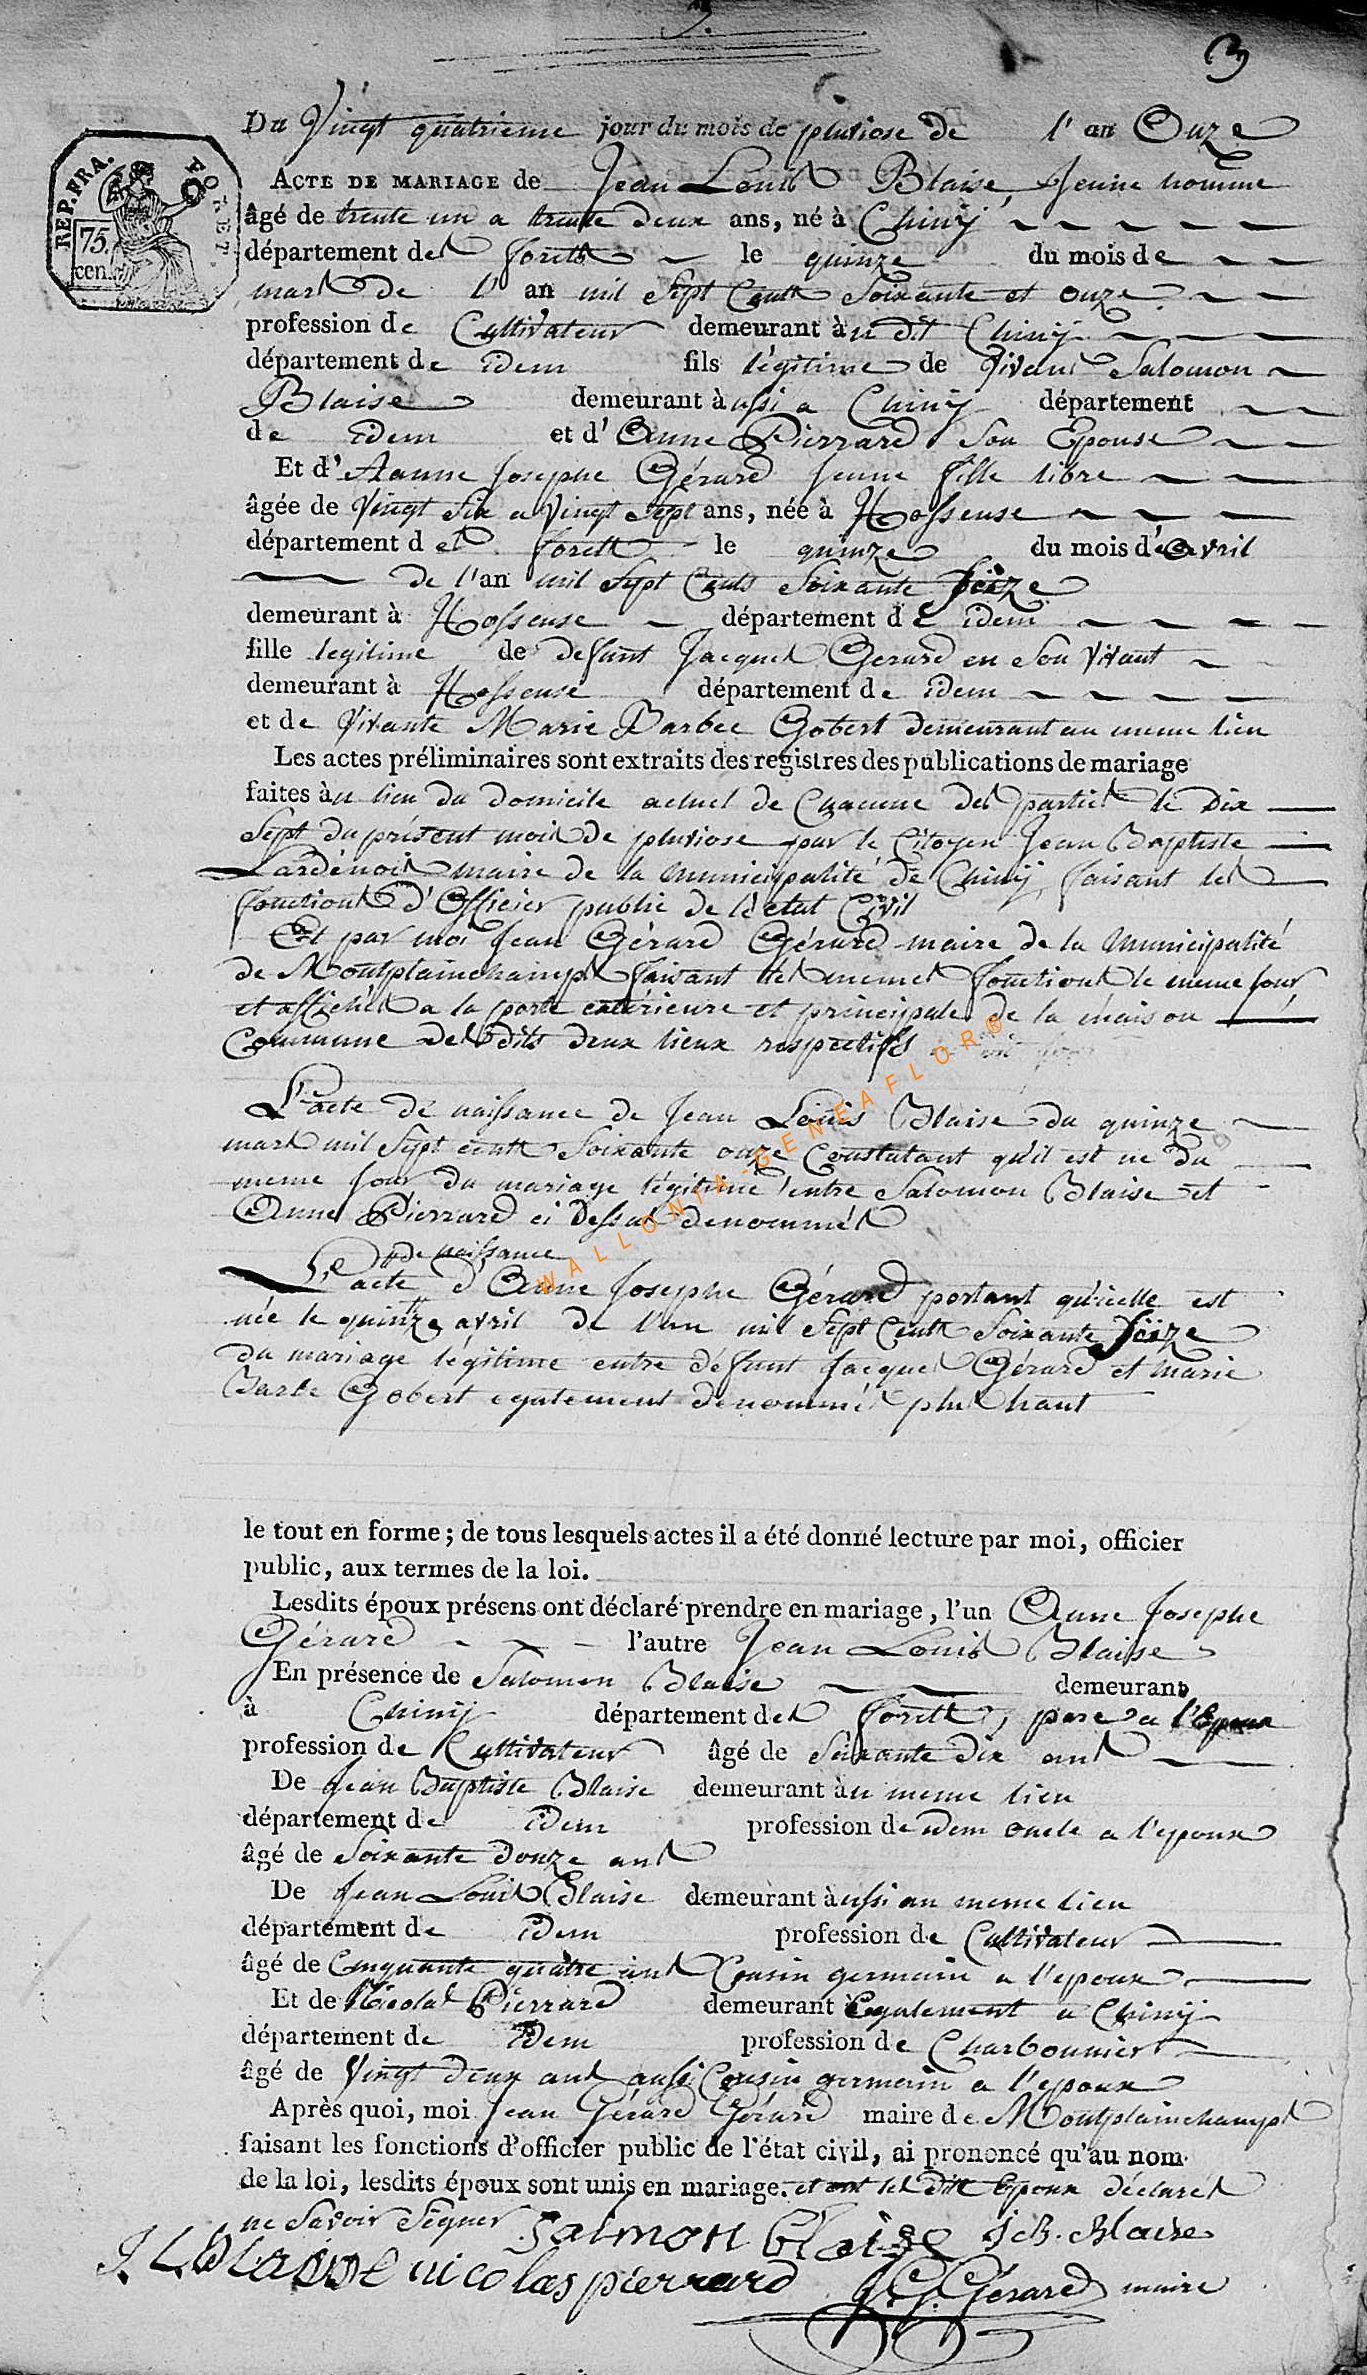 3.
3
REP. FRA.
FORET.
75.
cen.
Du Vingt quatrieme jour du mois de pluviose de l'an Onze
ACTE DE MARIAGE de Jean Louis Blaise Jeune homme
âgé de trente un a trente deux ans, né à Chinÿ
département des forêts le quinze du mois de
mars de l'an mil Sept Cents Soixante et onze
profession de Cultivateur demeurant àu dit Chinÿ
département de idem fils légitime de Vivant Salomon
Blaise demeurant àussi a Chinÿ département
de idem et d'Anne Pierrard Son Epouse
Et d'Aanne Josephe Gérard Jeune fille libre
âgée de Vingt Six a Vingt Sept ans, née à Hosseuse
département des forêts le quinze du mois d'avril
de l'an mil Sept Cents Soixante Seize
demeurant à Hosseuse département de idem
fille legitime de defunt Jacques Gerard en Son Vivant
demeurant à Hosseuse département de idem
et de Vivante Marie Barbee Gobert demeurant au meme lieu
Les actes préliminaires sont extraits des registres des publications de mariage
faites àu lieu du domicile actuel de Chacune des parties le Dix
Sept du présent mois de pluviose par le Citoyen Jean Baptiste
Lardénois maire de la municipalité de Chinÿ, faisant les
fonctions d'Officier public de l'état Civil
Et par moi Jean Gérard Gérard maire de la municipalité
de Montplainchamps faisant les memes fonctions le meme jour
et affichés a la porte extérieure et principale de la maison
Commune des dits deux lieux respectifs
L'acte de naissance de Jean Louis Blaise du quinze
mars mil Sept cents Soixante onze Constatant qu'il est né du
meme jour du mariage légitime entre Salomon Blaise et
Anne Pierrard ci dessus denommés
de naissance
L'acte d'Anne Josephe Gérard portant qu'icelle est
née le quinze avril de l'an mil Sept Cents Soixante Seize
du mariage légitime entre défunt Jacques Gérard et Marie
Barbe Gobert egalement denommés plus haut
le tout en forme; de tous lesquels actes il a été donné lecture par moi, officier
public, aux termes de la loi.
Lesdits époux présens ont déclaré prendre en mariage, l'un Anne Josephe
Gérard l'autre Jean Louis Blaise
En présence de Salomon Blaise demeurant
à Chinÿ département des forêts, pere a l'Epoux
profession de Cultivateur âgé de Soixante Dix ans
De Jean Baptiste Blaise demeurant àu meme lieu
département de idem profession de idem oncle a l'epoux
âgé de Soixante Douze ans
De Jean Louis Blaise demeurant àussi au meme lieu
département de idem profession de Cultivateur
âgé de Cinquante quatre ans Cousin germain a l'epoux
Et de Nicolas Pierrard demeurant également a Chinÿ
département de idem profession de Charbonnier
âgé de Vingt Deux ans aussi Cousin germain a l'epoux
Après quoi, moi Jean Gérard Gérard maire de Montplainchamps
faisant les fonctions d'officier public de l'état civil, ai prononcé qu'au nom
de la loi, lesdits époux sont unis en mariage. et ont les dits Epoux déclarés
ne Savoir Signer Salmon Blaise J. B. Blaise
J L Blaisse nicolas pierrard J. G. Gérard maire
WALLONIA-GENEAFLOR®